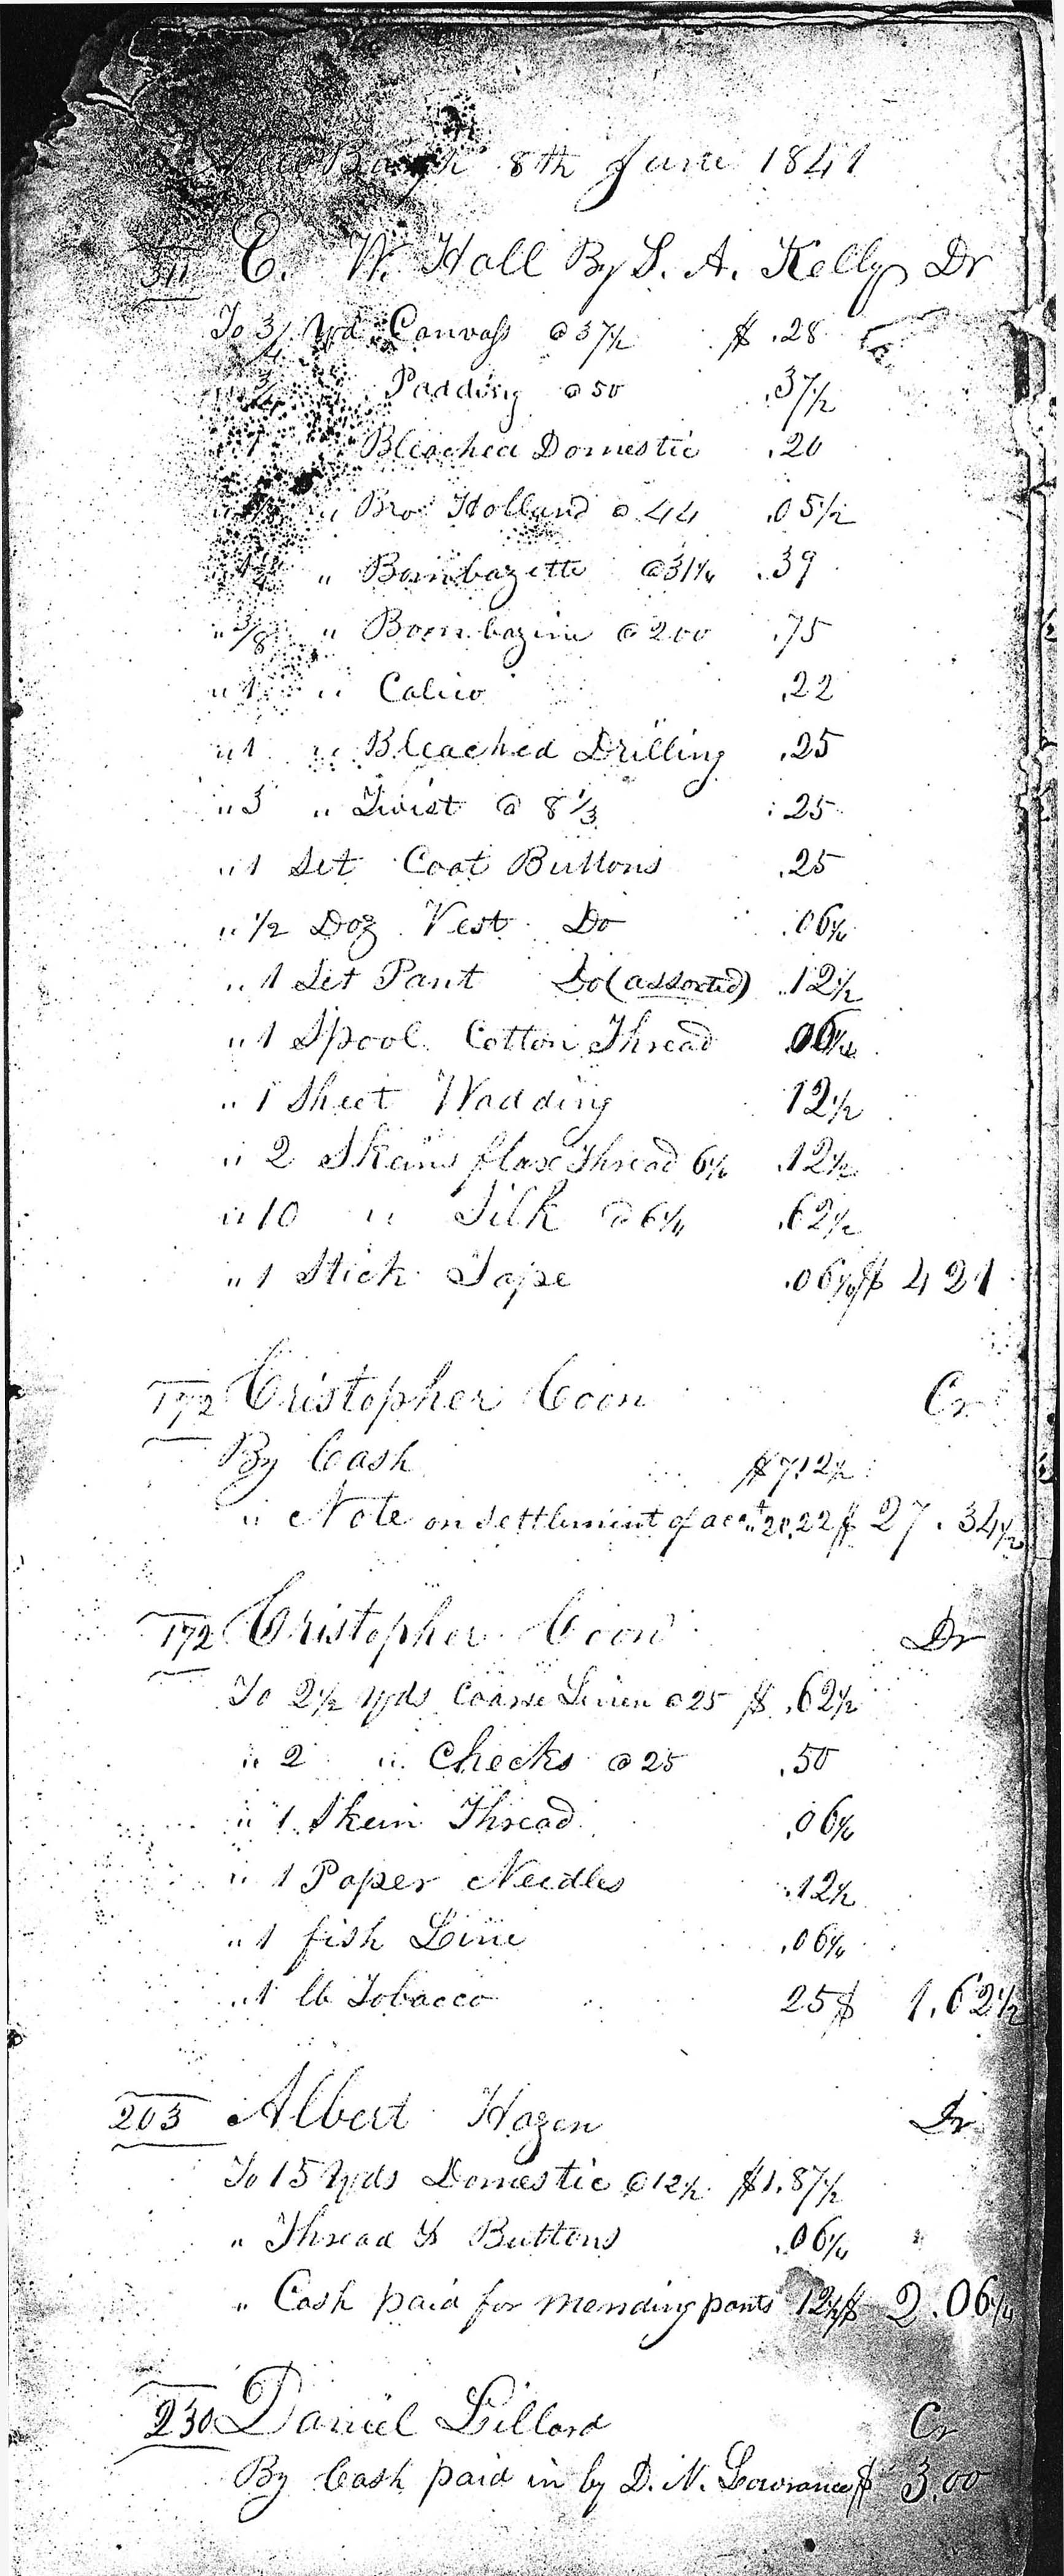 8th June 1841
311 C. W. Hall By S. A. Kelly Dr
To 3/4 Yd Canvass @ 37½ $ .28
" 3/4 Padding @ 50 .37½
" 1 Bleached Domestic .20
" " Bro Holland @ 44 .05½
" " Bombazette @ 31¼ .39
" 3/8 " Boembazine @ 200 .75
" 1 " Calico .22
" 1 " Bleached Drilling .25
" 3 " Twist @ 8⅓ .25
" 1 Set Coat Buttons .25
" ½ Doz Vest Do .06¼
" 1 Set Pant Do (assorted) .12½
" 1 Spool Cotton Thread .06¼
" 1 Sheet Wadding 12½
" 2 Skeins flax Thread 6¼ .12½
" 10 " Silk @ 6¼ .62½
" 1 Stick Tape .06¼ $ 4 21
172 Cristopher Coon Cr
By Cash $7.12½
" Note on settlement of acct " 20.22 $ 27.34½
172 Christopher Coon Dr
To 2½ Yds Coarse Linen @ 25 $ .62½
" 2 " Checks @ 25 .50
" 1 Skein Thread .06¼
" 1 Paper Needles .12½
" 1 fish Line .06¼
" 1 lb Tobacco 25 $ 1.62½
203 Albert Hazen Dr
To 15 Yds Domestic @ 12½ $1.87½
" Thread & Buttons .06¼
" Cash paid for mending pants 12½ $ 2.06¼
230 Daniel Lillard Cr
By Cash paid in by D. N. Lowrance $ 3.00